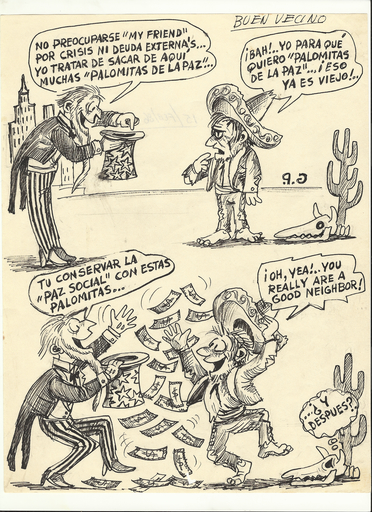 BUEN VECINO
NO PREOCUPARSE "MY FRIEND"
POR CRISIS NI DEUDA EXTERNA'S...
YO TRATAR DE SACAR DE AQUÍ
MUCHAS "PALOMITAS DE LA PAZ"...
¡BAH!..YO PARA QUÉ
QUIERO "PALOMITAS
DE LA PAZ"...¡ESO
YA ES VIEJO!..
R.G
TU CONSERVAR LA
"PAZ SOCIAL" CON ESTAS
PALOMITAS...
¡OH, YEA!..YOU
REALLY ARE A
GOOD NEIGHBOR!
...¿Y
DESPUES?